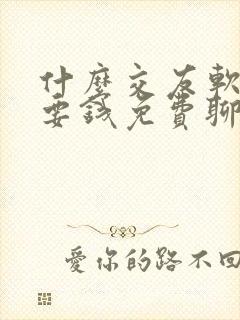 什麼交友軟
要錢免費聊
愛你的路不回